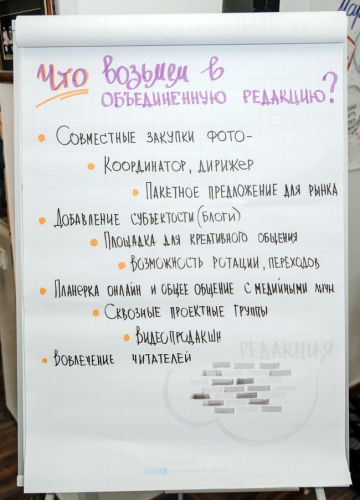 Что возьмем в
объединенную редакцию?
Совместные закупки фото-
Координатор, дирижер
Пакетное предложение для рынка
Добавление субъектости (блоги)
Площадка для креативного общения
Возможность ротации, переходов
Планерка онлайн и общее общение с медийными
Сквозные проектные группы
Видеопродакшн
Вовлечение читателей
РЕДАКЦИЯ